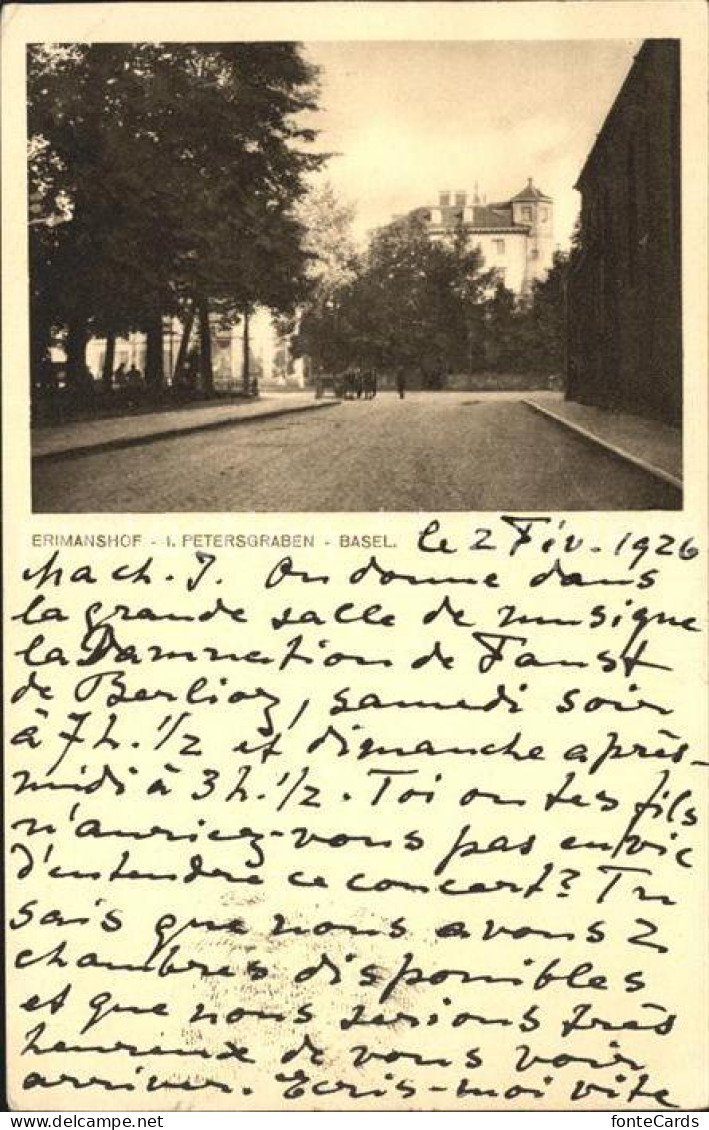 ERIMANSHOF - I. PETERSGRABEN - BASEL.
le 2 Fév. 1926
Mach. J. On donne dans
la grande salle de musique
la Damnation de Faust
de Berlioz, samedi soir
à 7h. 1/2 et dimanche après-
midi à 3h. 1/2. Toi ou tes fils
n'auriez-vous pas envie
d'entendre ce concert? Tu
sais que nous avons 2
chambres disponibles
et que nous serions très
heureux de vous voir
arriver. Ecris-moi vite
fonteCards